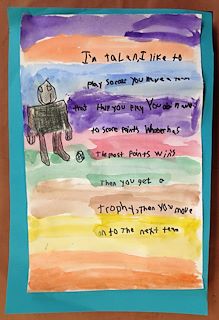 I'm talen, I like to
play soccer You have a team
that then you play You do n way
to score Points Whoever has
The most Points wins
Then You get a
trophy, then You move
on to the next team